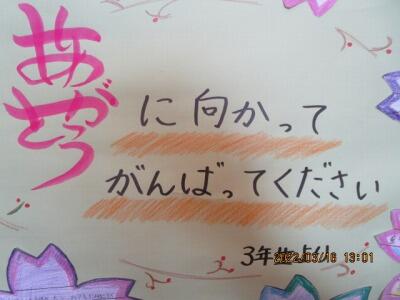 ありがとう
に向かって
がんばってください
3年
2022/03/16 13:01